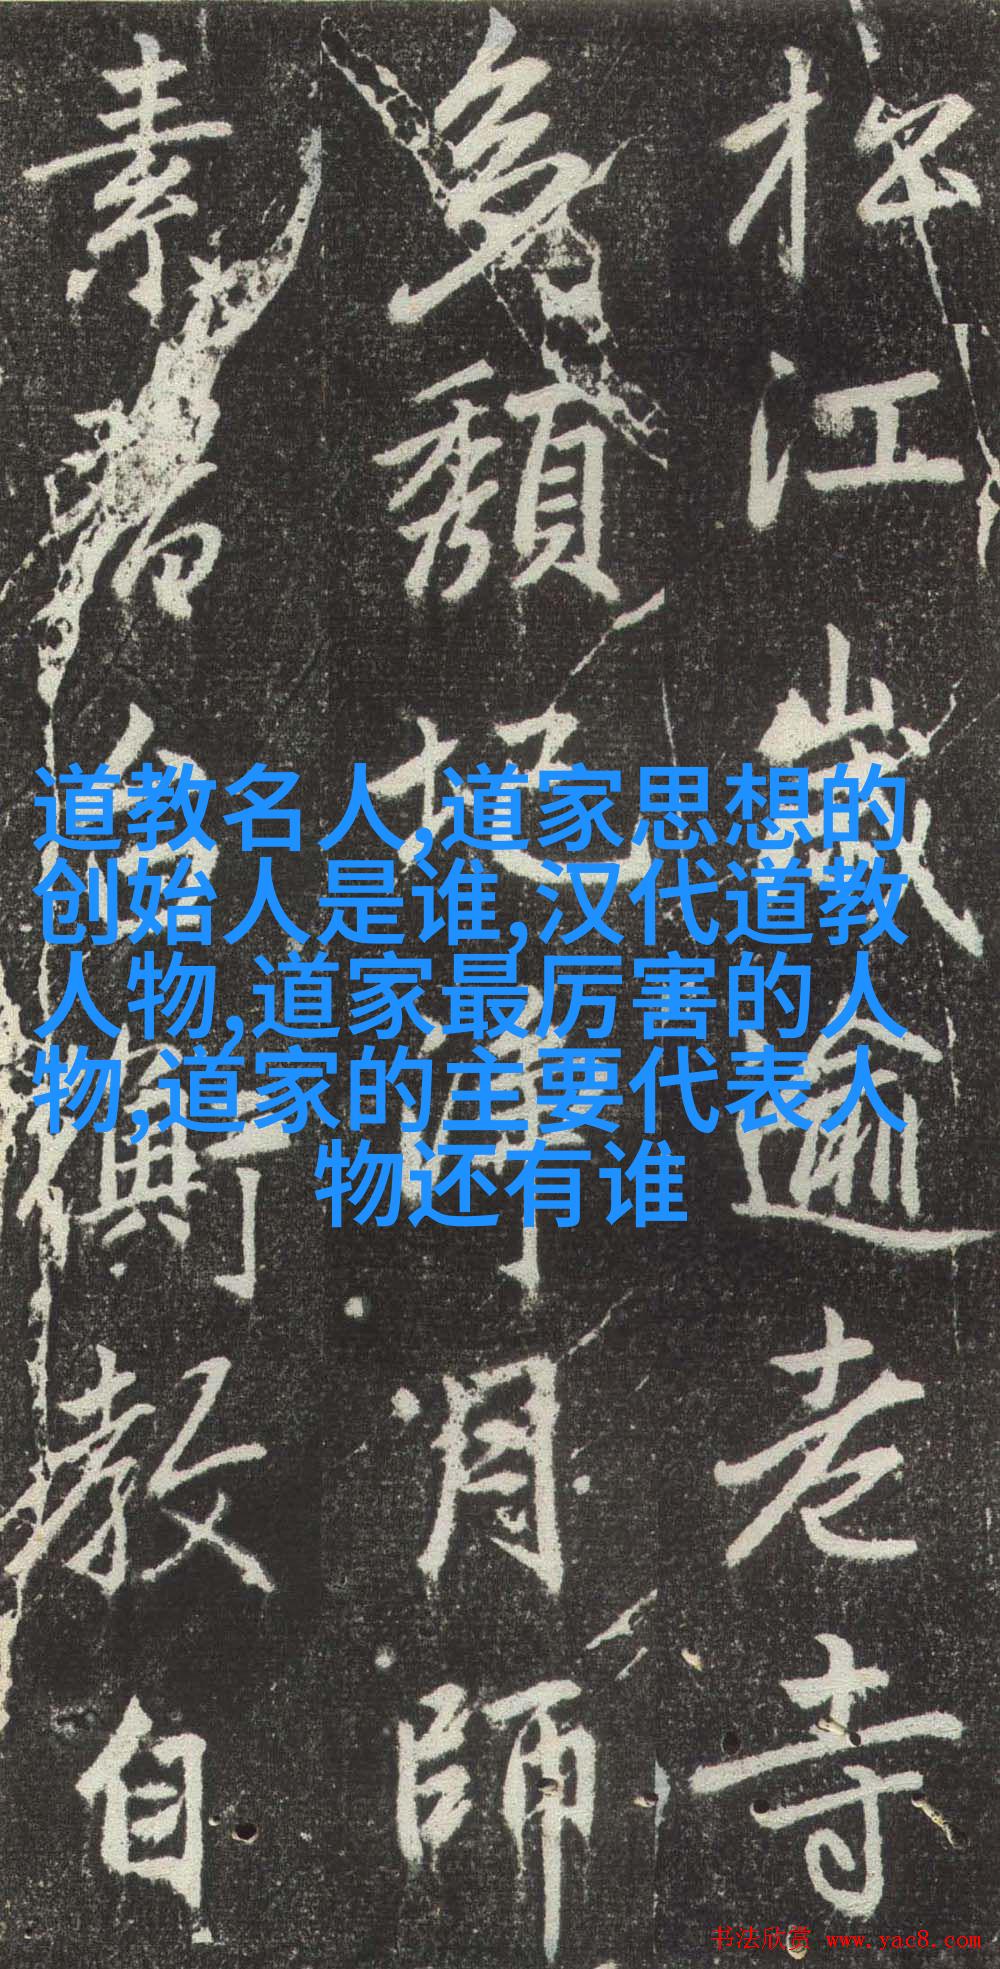 道教名人,道家思想的
创始人是谁,汉代道教
人物,道家最厉害的人
物,道家的主要代表人
物还有谁
江歲逾老寺
頹圮月師
素教自
书法欣赏 www.yac8.com